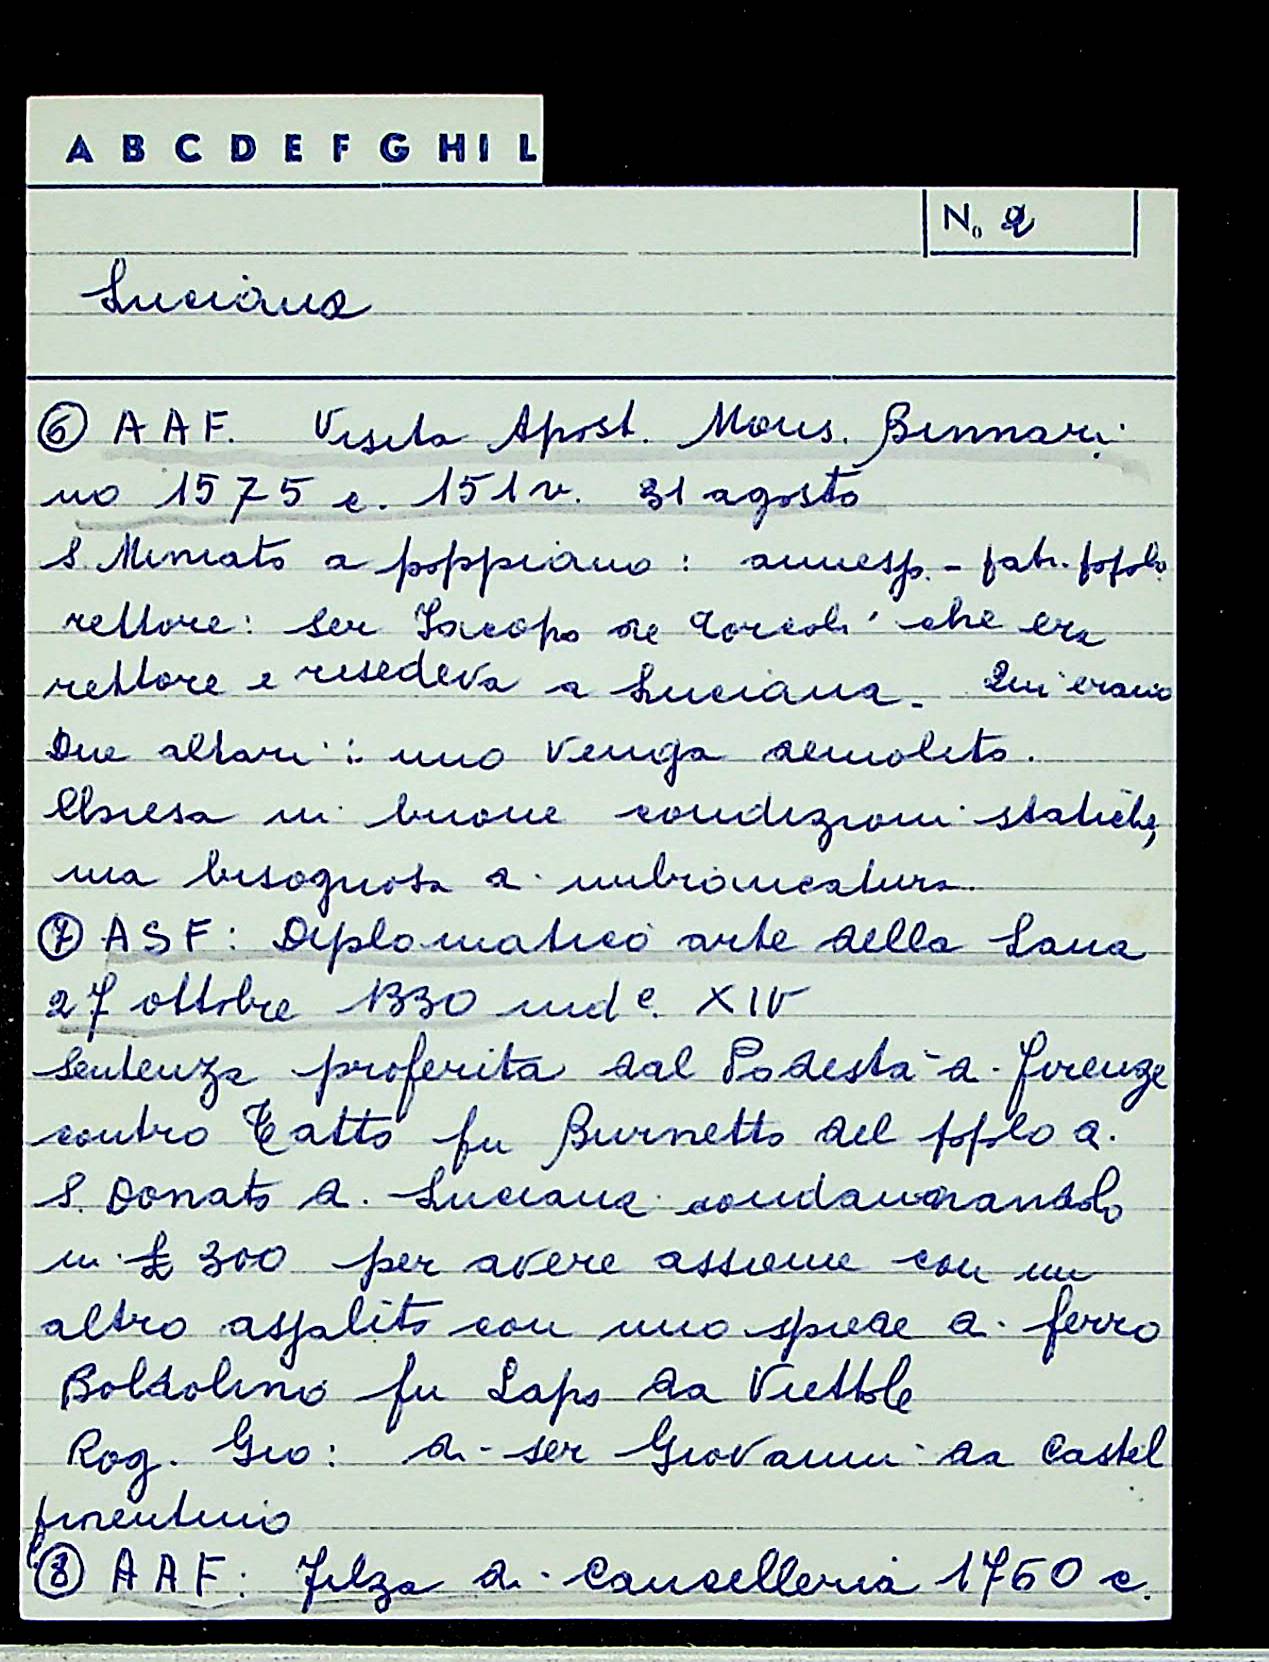 A B C D E F G H I L
N. 2
Luciana
⑥ A A F. Visita Apost. Mons. Binnari
no 1575 c. 151v. 31 agosto
S. Miniato a poppiano: annesp. - patr. popolo
rettore: ser Jacopo de Torcoli che era
rettore e risedeva a Luciana. Qui erano
Due altari: uno venga demolito.
Chiesa in buone condizioni statiche,
ma bisognosa di imbiancatura.
⑦ A S F: Diplomatico arte della Lana
27 ottobre 1330 ind e. XIV
sentenza proferita dal Podestà di firenze
contro Tatto fu Burnetto del popolo di
S. Donato di Luciana condannandolo
in £ 300 per avere assieme con un
altro assalito con uno spiede di ferro
Boldolino fu Lapo da Viettole
Rog. Gio: di ser Giovanni da Castel
fiorentino
⑧ A A F: Filza di Cancelleria 1760 c.